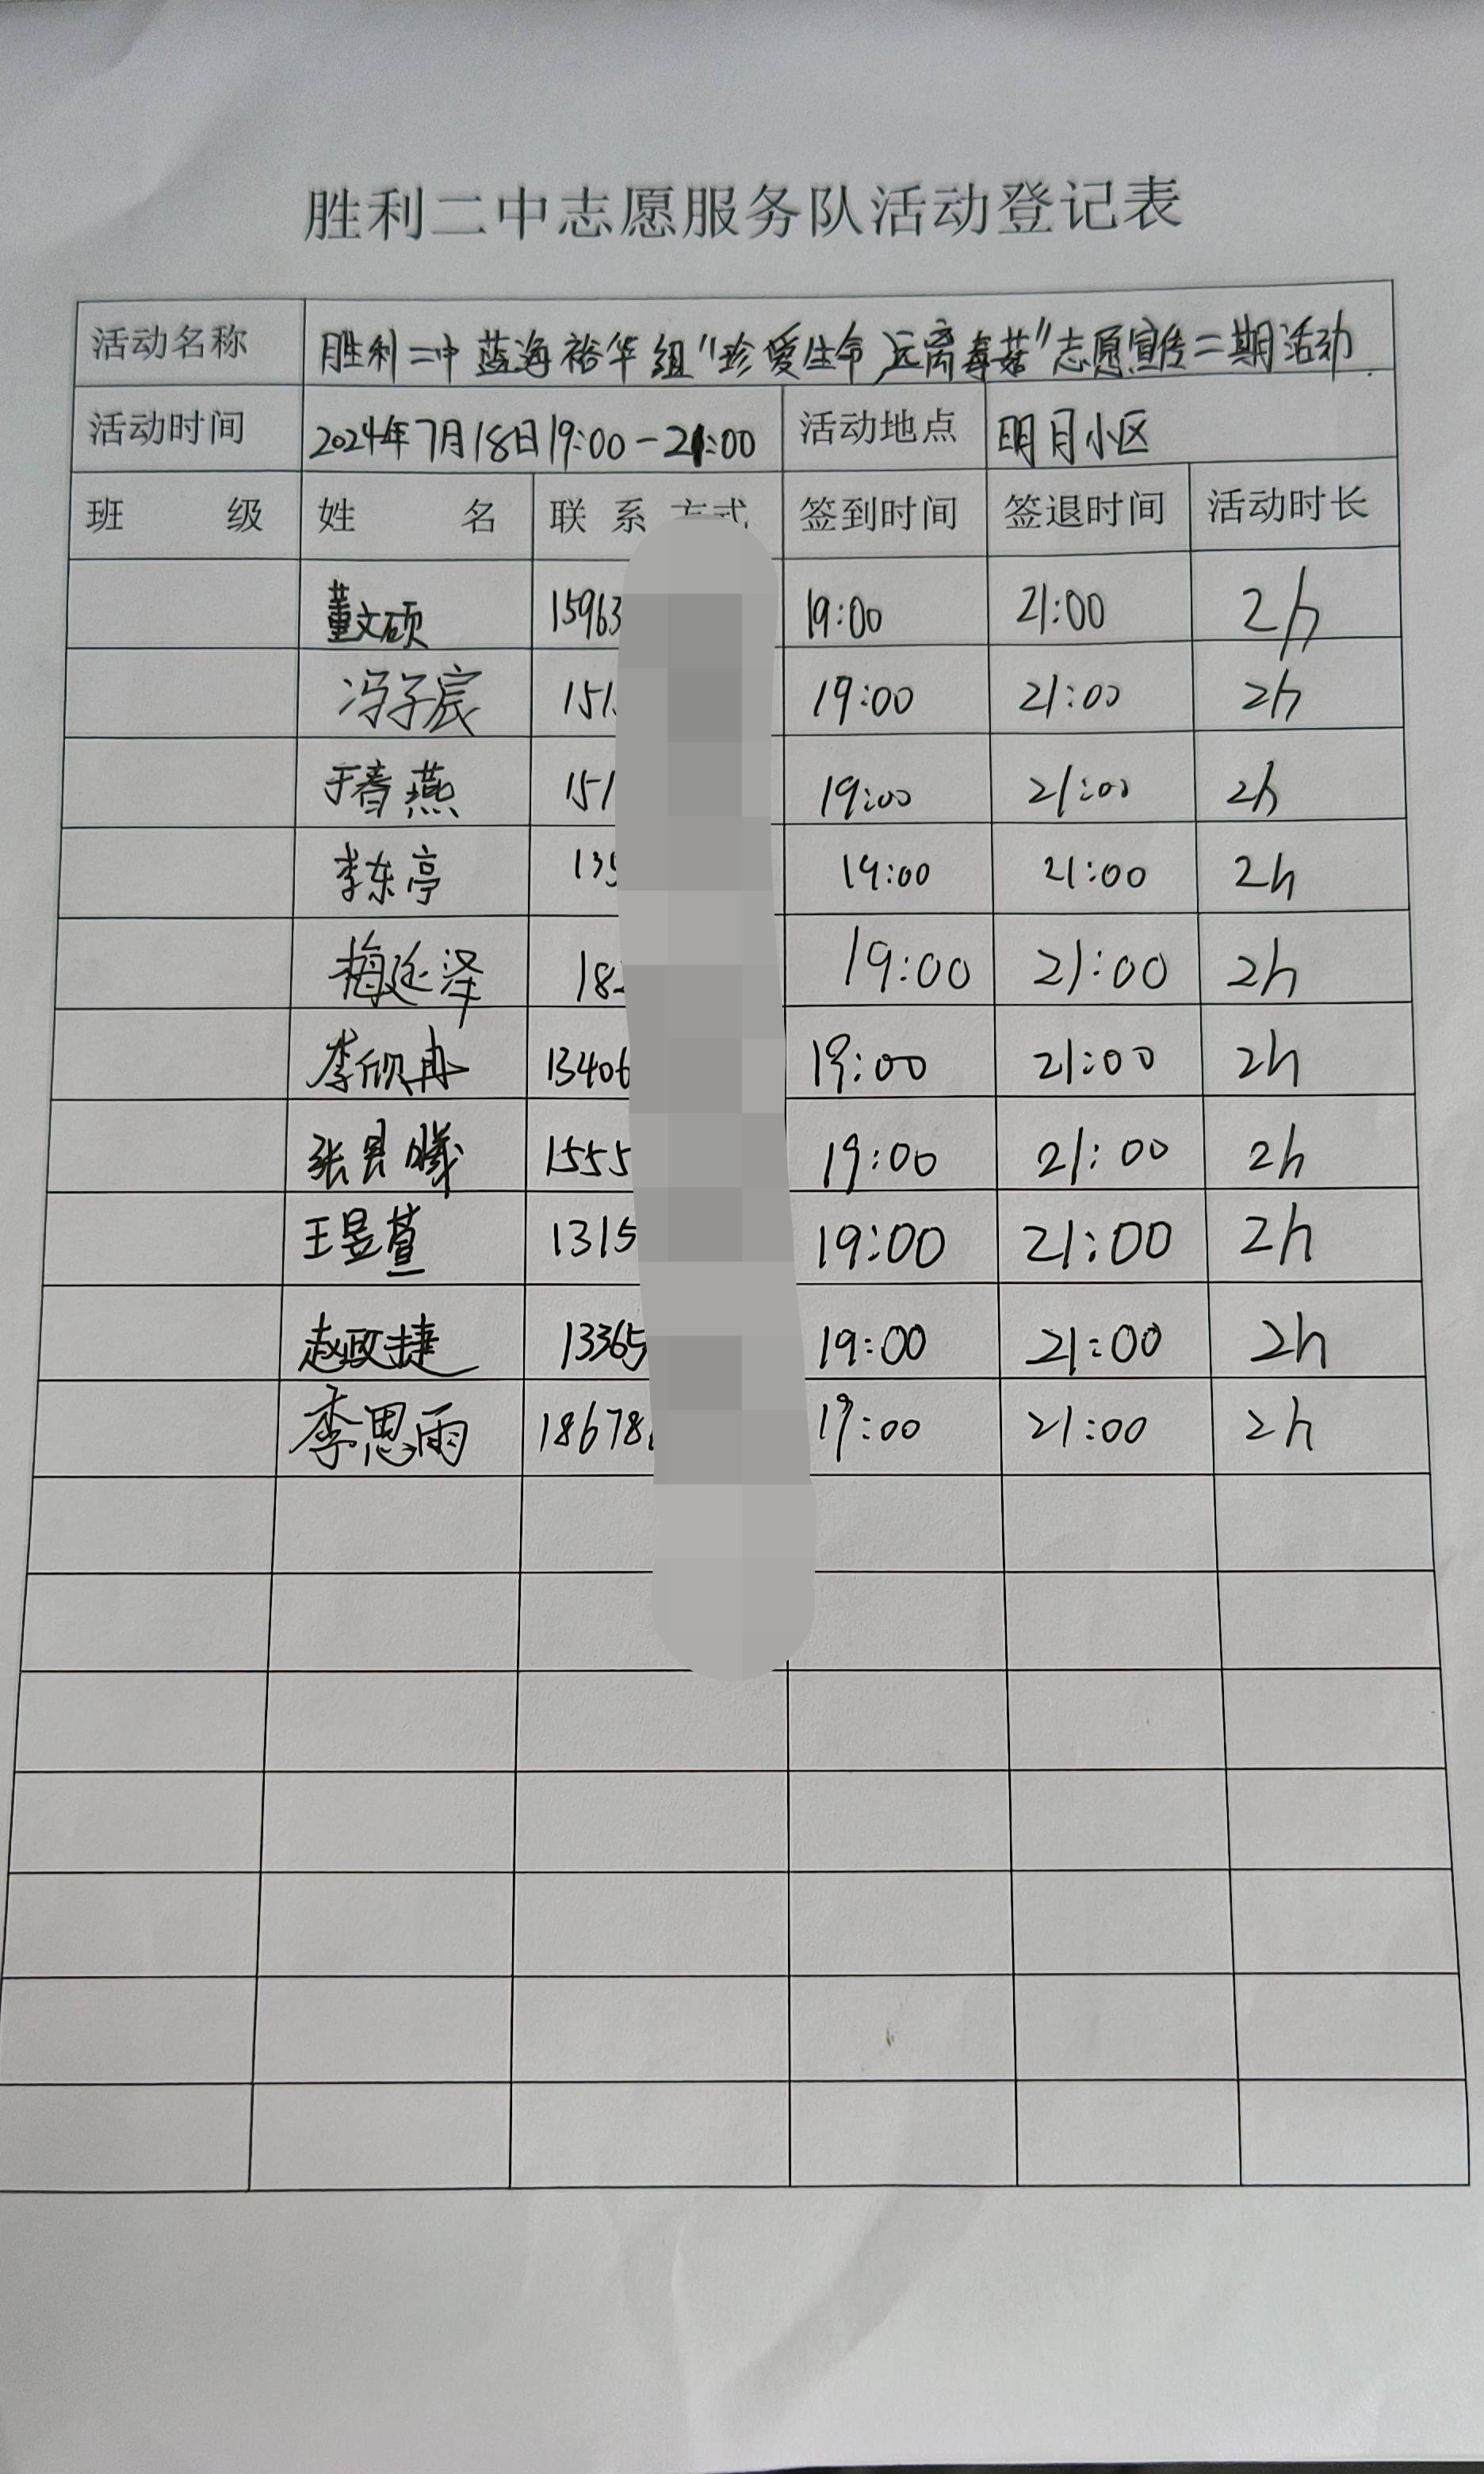 胜利二中志愿服务队活动登记表
活动名称 胜利二中蓝海裕华组"珍爱生命,远离毒菇"志愿宣传二期活动.
活动时间 2024年7月18日19:00-21:00 活动地点 明月小区
班 级 姓 名 联系方式 签到时间 签退时间 活动时长
董文硕 15963 19:00 21:00 2h
冯子宸 151 19:00 21:00 2h
于春燕 151 19:00 21:00 2h
李东亭 135 19:00 21:00 2h
梅延泽 182 19:00 21:00 2h
李欣冉 13406 19:00 21:00 2h
张 曦 1555 19:00 21:00 2h
王昱萱 1315 19:00 21:00 2h
赵政捷 13365 19:00 21:00 2h
李思雨 18678 19:00 21:00 2h